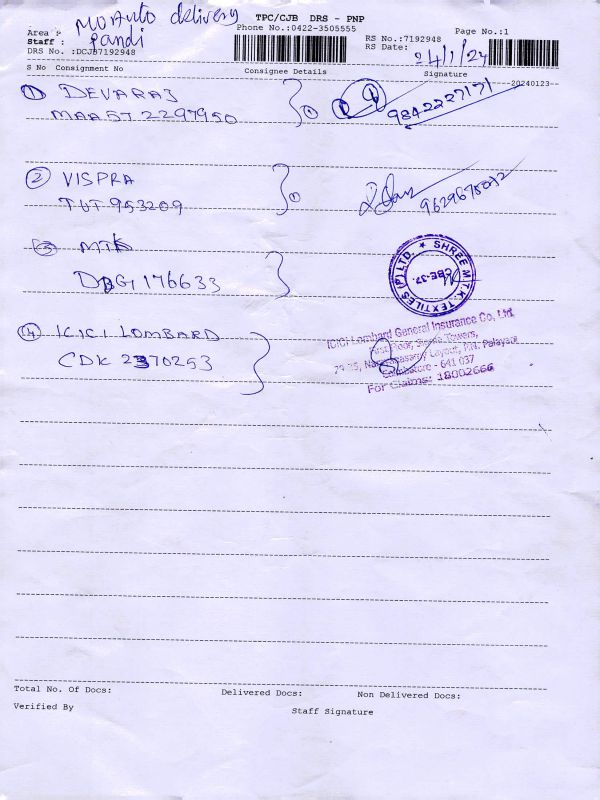 MO Auto delivery
Pandi
TPC/CJB DRS - PNP
Phone No.:0422-3505555
Page No.:1
Area :
RS No.:7192948
Staff :
RS Date:
24/1/24
DRS No. :DCJB7192948
S No Consignment No
Consignee Details
Signature
20240123
① DEVARAJ
①
9842227171
MAA 57 2297950
② VISPRA
①
TUT 953209
③ MTK
DBG 176633
★ SHREE M.T.K. TEXTILES (P) LTD.
CBE-37.
④ ICICI LOMBARD
CDK 2370253
ICICI Lombard General Insurance Co. Ltd.
First Floor, Towers,
Layout, Palayam
Coimbatore - 641 037
For Claims: 18002666
Total No. Of Docs:
Delivered Docs:
Non Delivered Docs:
Verified By
Staff Signature